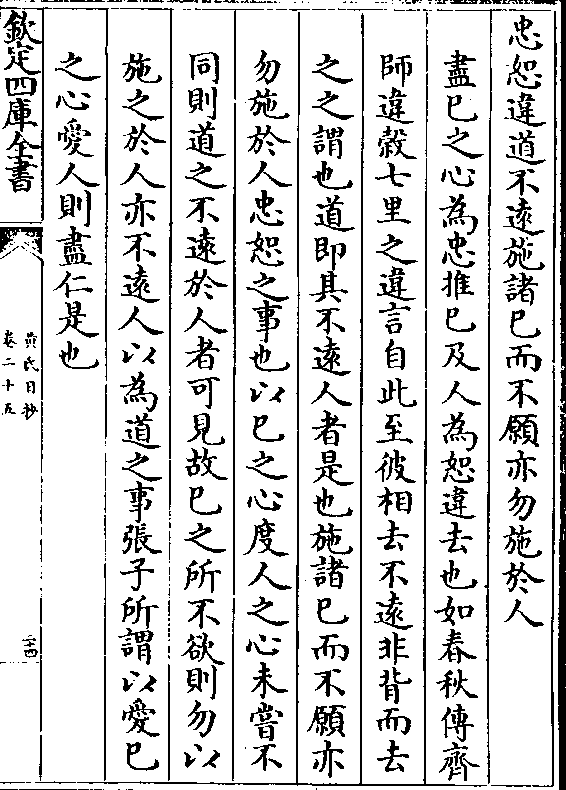 忠恕違道不遠施諸已而不願亦勿施於人
盡已之心為忠推已及人為恕違去也如春秋傳齊
師違榖七里之違言自此至彼相去不遠非背而去
之之謂也道即其不遠人者是也施諸已而不願亦
勿施於人忠恕之事也以已之心度人之心未嘗不
同則道之不遠於人者可見故已之所不欲則勿以
施之於人亦不遠人以為道之事張子所謂以愛已
之心愛人則盡仁是也
欽定四庫全書
黄氏日抄
卷二十五
二十四